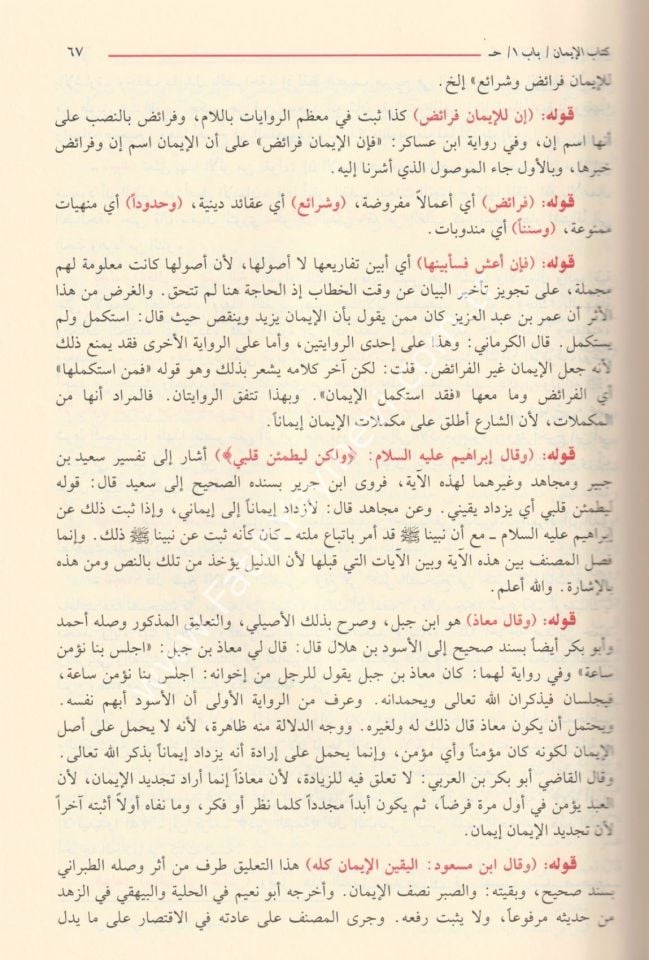 كتاب الإيمان / باب ١/ حـ ٦٧
للإيمان فرائض وشرائع» إلخ.
قوله: (إن للإيمان فرائض) كذا ثبت في معظم الروايات باللام، وفرائض بالنصب على
أنها اسم إن، وفي رواية ابن عساكر: «فإن الإيمان فرائض» على أن الإيمان اسم إن وفرائض
خبرها، وبالأول جاء الموصول الذي أشرنا إليه.
قوله: (فرائض) أي أعمالاً مفروضة، (وشرائع) أي عقائد دينية، (وحدوداً) أي منهيات
ممنوعة، (وسنناً) أي مندوبات.
قوله: (فإن أعش فسأبينها) أي أبين تفاريعها لا أصولها، لأن أصولها كانت معلومة لهم
مجملة، على تجويز تأخير البيان عن وقت الخطاب إذ الحاجة هنا لم تتحق. والغرض من هذا
الأثر أن عمر بن عبد العزيز كان ممن يقول بأن الإيمان يزيد وينقص حيث قال: استكمل ولم
يستكمل. قال الكرماني: وهذا على إحدى الروايتين، وأما على الرواية الأخرى فقد يمنع ذلك
لأنه جعل الإيمان غير الفرائض. قلت: لكن آخر كلامه يشعر بذلك وهو قوله «فمن استكملها»
أي الفرائض وما معها «فقد استكمل الإيمان». وبهذا تتفق الروايتان. فالمراد أنها من
المكملات، لأن الشارع أطلق على مكملات الإيمان إيماناً.
قوله: (وقال إبراهيم عليه السلام: ﴿ولكن ليطمئن قلبي﴾) أشار إلى تفسير سعيد بن
جبير ومجاهد وغيرهما لهذه الآية، فروى ابن جرير بسنده الصحيح إلى سعيد قال: قوله
ليطمئن قلبي أي يزداد يقيني. وعن مجاهد قال: لأزداد إيماناً إلى إيماني، وإذا ثبت ذلك عن
إبراهيم عليه السلام ـ مع أن نبينا ﷺ قد أمر باتباع ملته ـ كان كأنه ثبت عن نبينا ﷺ ذلك. وإنما
فصل المصنف بين هذه الآية وبين الآيات التي قبلها لأن الدليل يؤخذ من تلك بالنص ومن هذه
بالإشارة. والله أعلم.
قوله: (وقال معاذ) هو ابن جبل، وصرح بذلك الأصيلي، والتعليق المذكور وصله أحمد
وأبو بكر أيضاً بسند صحيح إلى الأسود بن هلال قال: قال لي معاذ بن جبل: «اجلس بنا نؤمن
ساعة» وفي رواية لهما: كان معاذ بن جبل يقول للرجل من إخوانه: اجلس بنا نؤمن ساعة،
فيجلسان فيذكران الله تعالى ويحمدانه. وعرف من الرواية الأولى أن الأسود أبهم نفسه.
ويحتمل أن يكون معاذ قال ذلك له ولغيره. ووجه الدلالة منه ظاهرة، لأنه لا يحمل على أصل
الإيمان لكونه كان مؤمناً وأي مؤمن، وإنما يحمل على إرادة أنه يزداد إيماناً بذكر الله تعالى.
وقال القاضي أبو بكر بن العربي: لا تعلق فيه للزيادة، لأن معاذاً إنما أراد تجديد الإيمان، لأن
العبد يؤمن في أول مرة فرضاً، ثم يكون أبداً مجدداً كلما نظر أو فكر، وما نفاه أولاً أثبته آخراً
لأن تجديد الإيمان إيمان.
قوله: (وقال ابن مسعود: اليقين الإيمان كله) هذا التعليق طرف من أثر وصله الطبراني
بسند صحيح، وبقيته: والصبر نصف الإيمان. وأخرجه أبو نعيم في الحلية والبيهقي في الزهد
من حديثه مرفوعاً، ولا يثبت رفعه. وجرى المصنف على عادته في الاقتصار على ما يدل